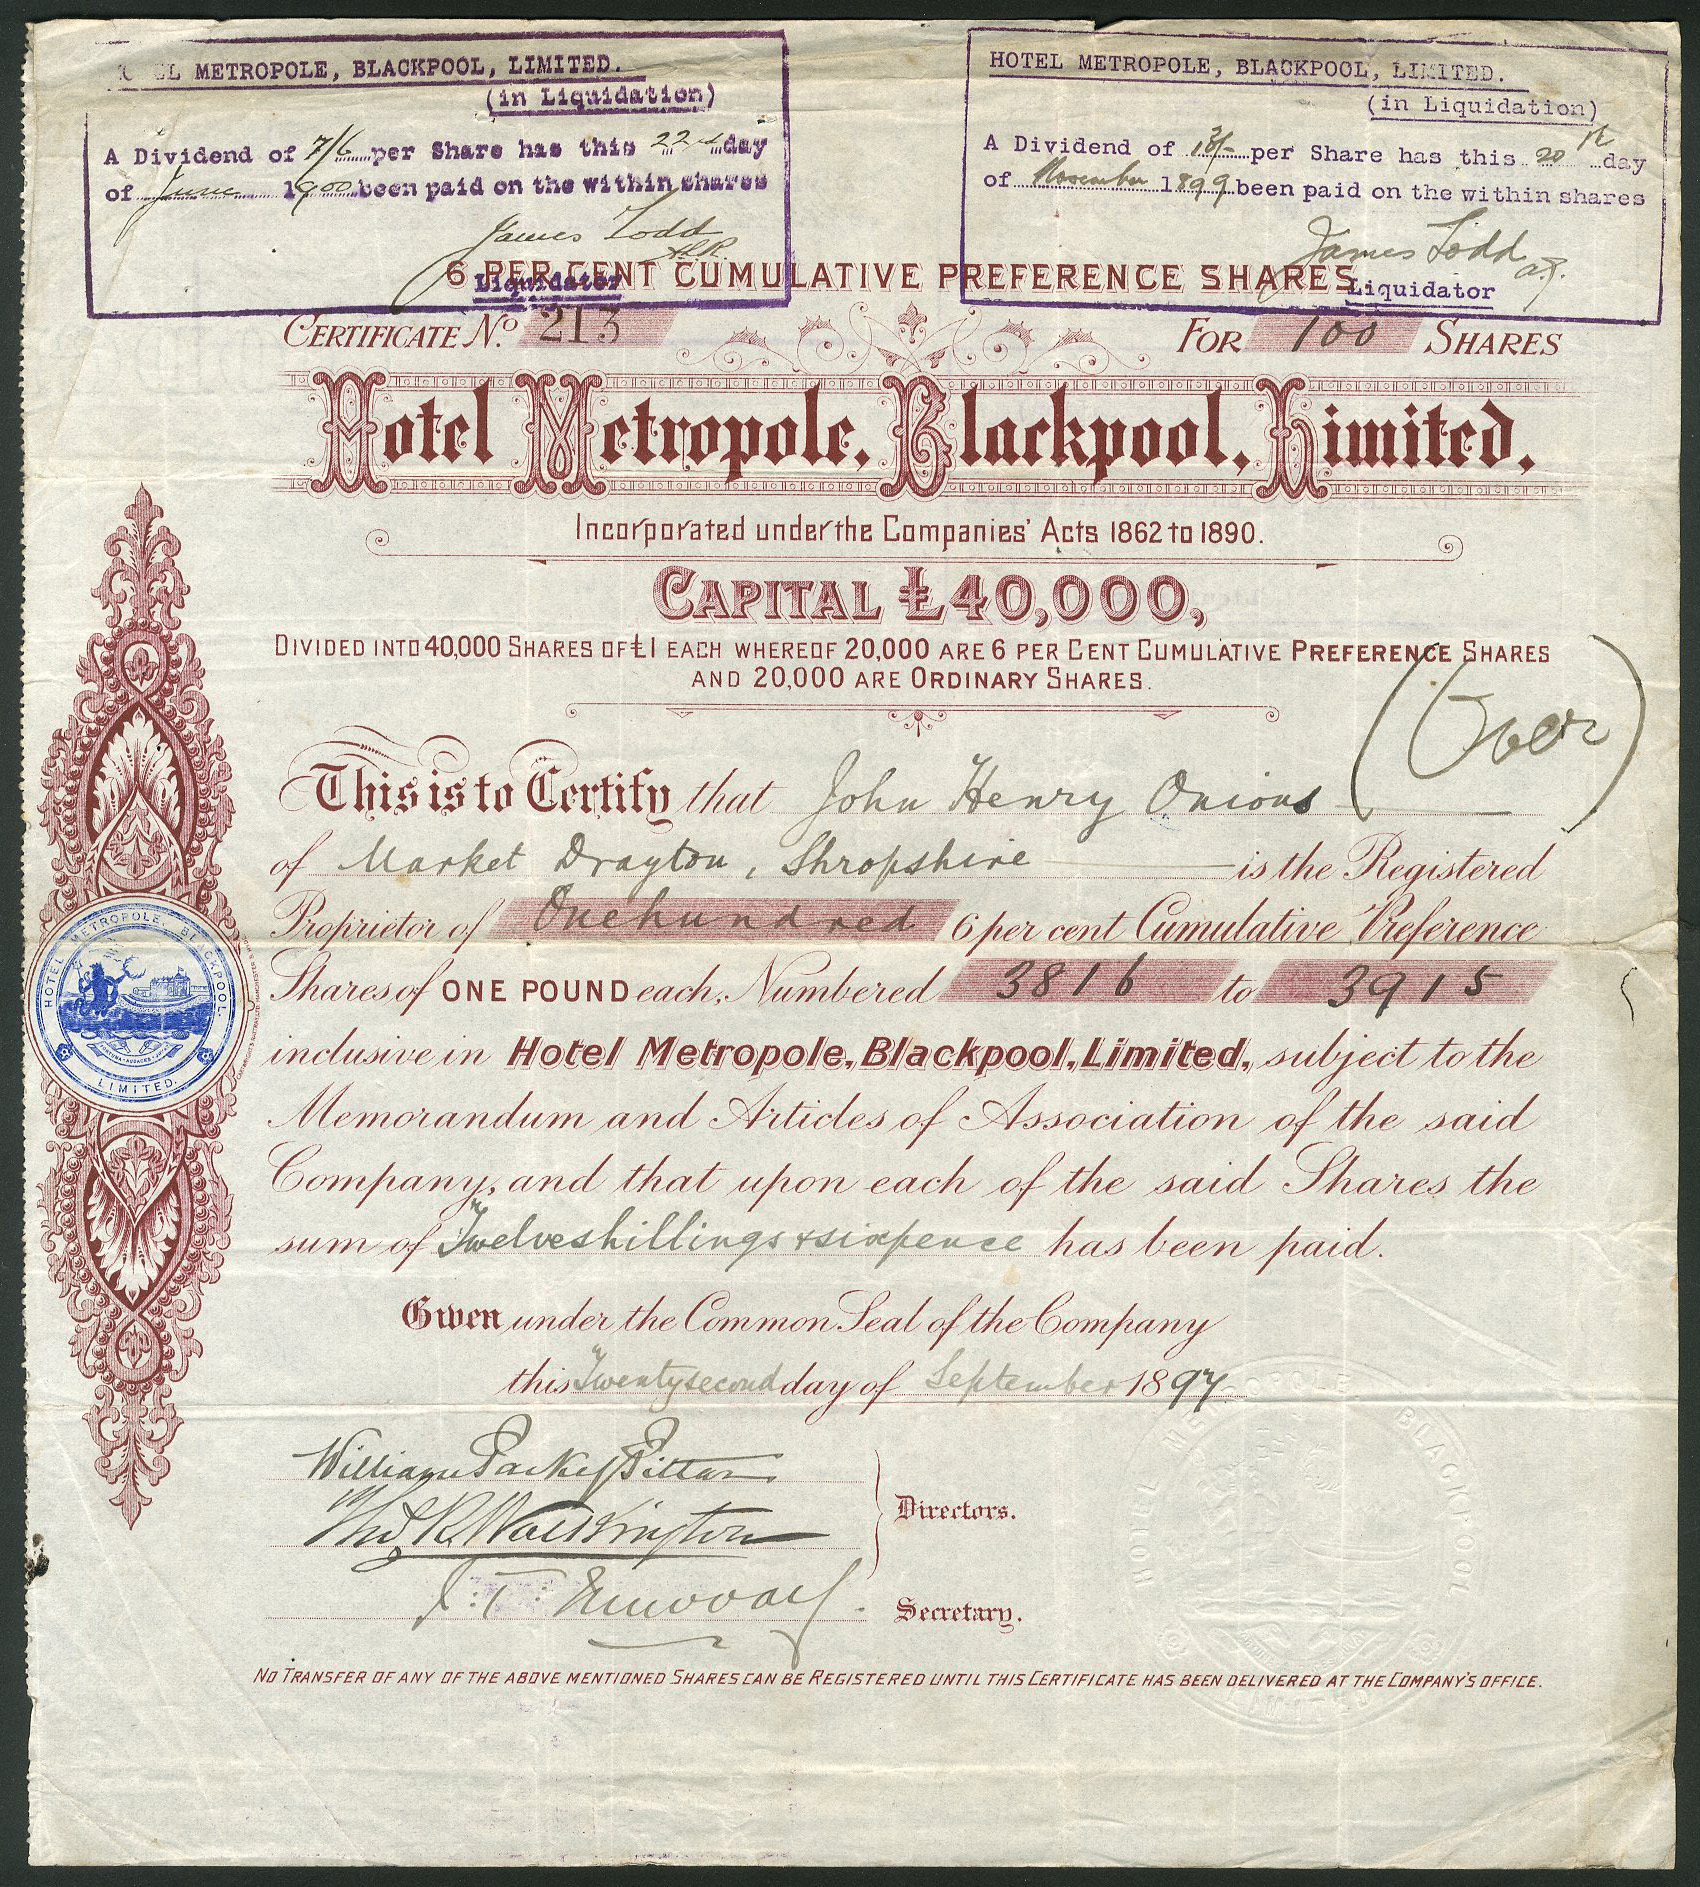 HOTEL METROPOLE, BLACKPOOL, LIMITED.
(in Liquidation)
A Dividend of 7/6 per Share has this 22nd day
of June 1900 been paid on the within shares
James Todd
Liquidator
HOTEL METROPOLE, BLACKPOOL, LIMITED.
(in Liquidation)
A Dividend of per Share has this 20th day
of November 1899 been paid on the within shares
James Todd
Liquidator
6 PER CENT CUMULATIVE PREFERENCE SHARES
CERTIFICATE No. 213
FOR 100 SHARES
Hotel Metropole, Blackpool, Limited,
Incorporated under the Companies' Acts 1862 to 1890.
CAPITAL £40,000,
DIVIDED INTO 40,000 SHARES OF £1 EACH WHEREOF 20,000 ARE 6 PER CENT CUMULATIVE PREFERENCE SHARES
AND 20,000 ARE ORDINARY SHARES.
(Over)
This is to Certify that John Henry Onions
of Market Drayton, Shropshire is the Registered
Proprietor of One hundred 6 per cent Cumulative Preference
Shares of ONE POUND each, Numbered 3816 to 3915
inclusive in Hotel Metropole, Blackpool, Limited, subject to the
Memorandum and Articles of Association of the said
Company, and that upon each of the said Shares the
sum of Twelve shillings & sixpence has been paid.
Given under the Common Seal of the Company
this Twenty second day of September 1897
William
Directors.
Secretary.
NO TRANSFER OF ANY OF THE ABOVE MENTIONED SHARES CAN BE REGISTERED UNTIL THIS CERTIFICATE HAS BEEN DELIVERED AT THE COMPANY'S OFFICE.
HOTEL METROPOLE, BLACKPOOL
LIMITED.
HOTEL METROPOLE BLACKPOOL
LIMITED